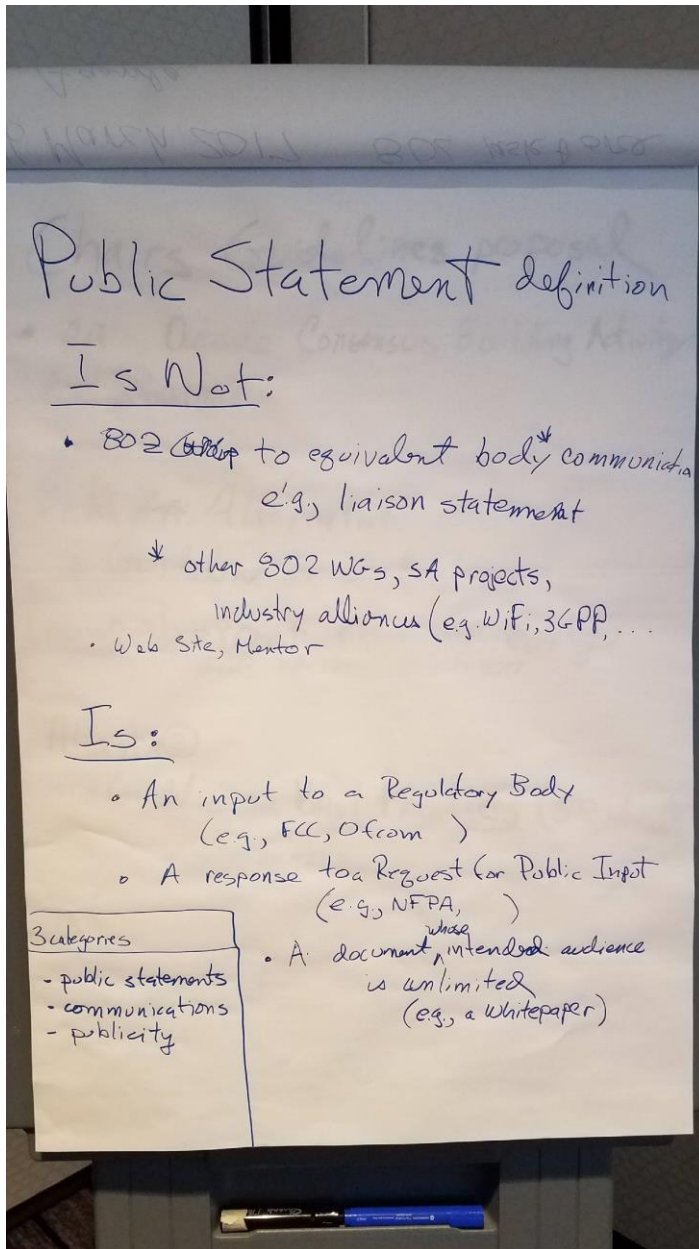 March 2017 802
Public Statement definition
Is Not:
• 802 to equivalent body* communicatio
e.g., liaison statement
* other 802 WGs, SA projects,
industry alliances (e.g. WiFi, 3GPP, ...
• Web Site, Mentor
Is:
• An input to a Regulatory Body
(e.g., FCC, Ofcom )
• A response to a Request for Public Input
(e.g., NFPA, )
• A document, whose intended audience
is unlimited
(e.g., a whitepaper)
3 categories
- public statements
- communications
- publicity